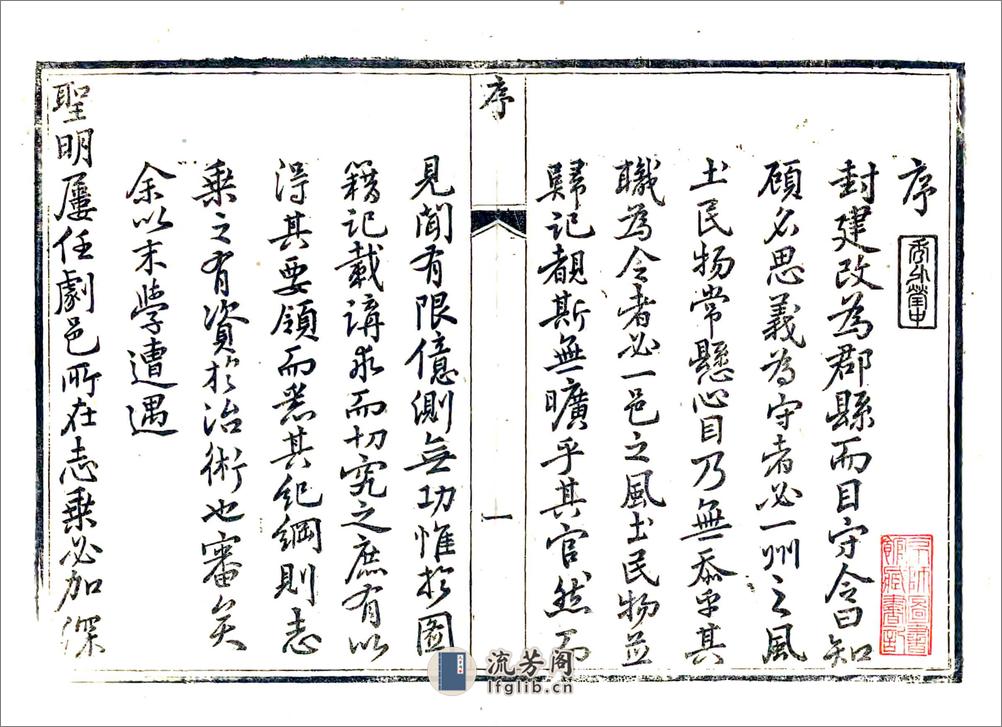 序
封建改為郡縣而目守令曰知
顧名思義為守者必一州之風
土民物常懸心目乃無忝乎其
職為令者必一邑之風土民物並
歸記覩斯無曠乎其官然而
序
一
見聞有限億測無功惟於圖
籍記載講求而切究之庶有以
得其要領而悉其紀綱則志
乗之有資於治術也審矣
余以末學遭遇
聖明屢任劇邑所在志乗必加深
京師圖書
館藏書記
流芳阁
lfglib.cn